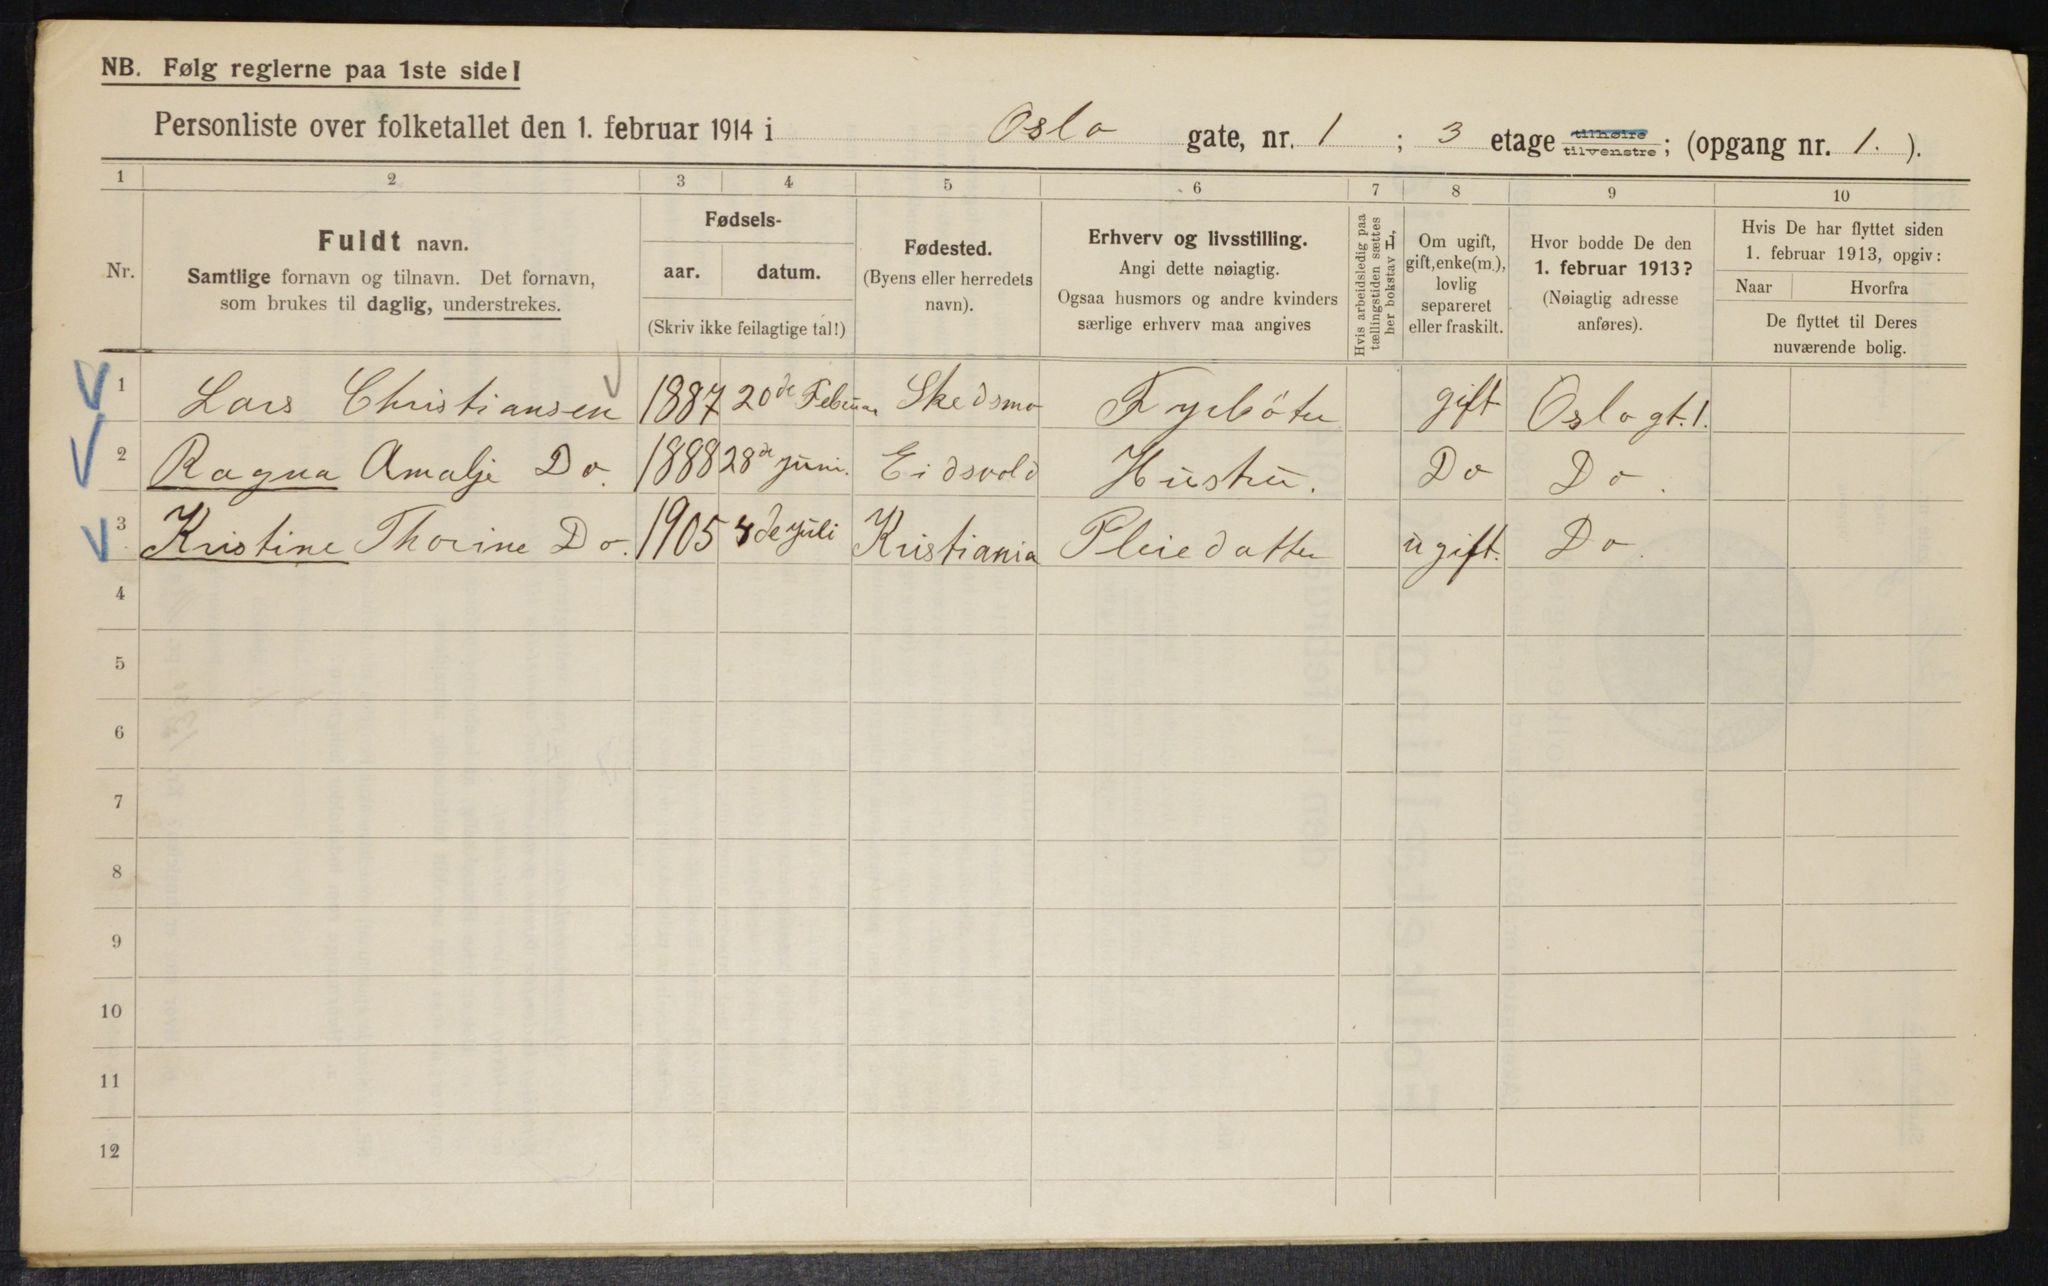 NB. Følg reglerne paa 1ste side!
Personliste over folketallet den 1. februar 1914 i Oslo gate, nr. 1 ; 3 etage tilhøire tilvenstre; (opgang nr. 1. ).
1 2 3 4 5 6 7 8 9 10
Nr.
Fuldt navn.
Samtlige fornavn og tilnavn. Det fornavn,
som brukes til daglig, understrekes.
Fødsels-
aar. datum.
(Skriv ikke feilagtige tal!)
Fødested.
(Byens eller herredets
navn).
Erhverv og livsstilling.
Angi dette nøiagtig.
Ogsaa husmors og andre kvinders
særlige erhverv maa angives
Hvis arbeidsledig paa
tællingstiden sættes
her bokstav L,
Om ugift,
gift, enke(m.),
lovlig
separeret
eller fraskilt.
Hvor bodde De den
1. februar 1913?
(Nøiagtig adresse
anføres).
Hvis De har flyttet siden
1. februar 1913, opgiv:
Naar Hvorfra
De flyttet til Deres
nuværende bolig.
1 Lars Christiansen 1887 20de Februar Skedsmo Fyrbøter gift Oslogt. 1.
2 Ragna Amalje Do. 1888 28de juni. Eidsvold Hustru. Do Do.
3 Kristine Thorine Do. 1905 4de juli Kristiania Pleiedatter ugift. Do.
4
5
6
7
8
9
10
11
12